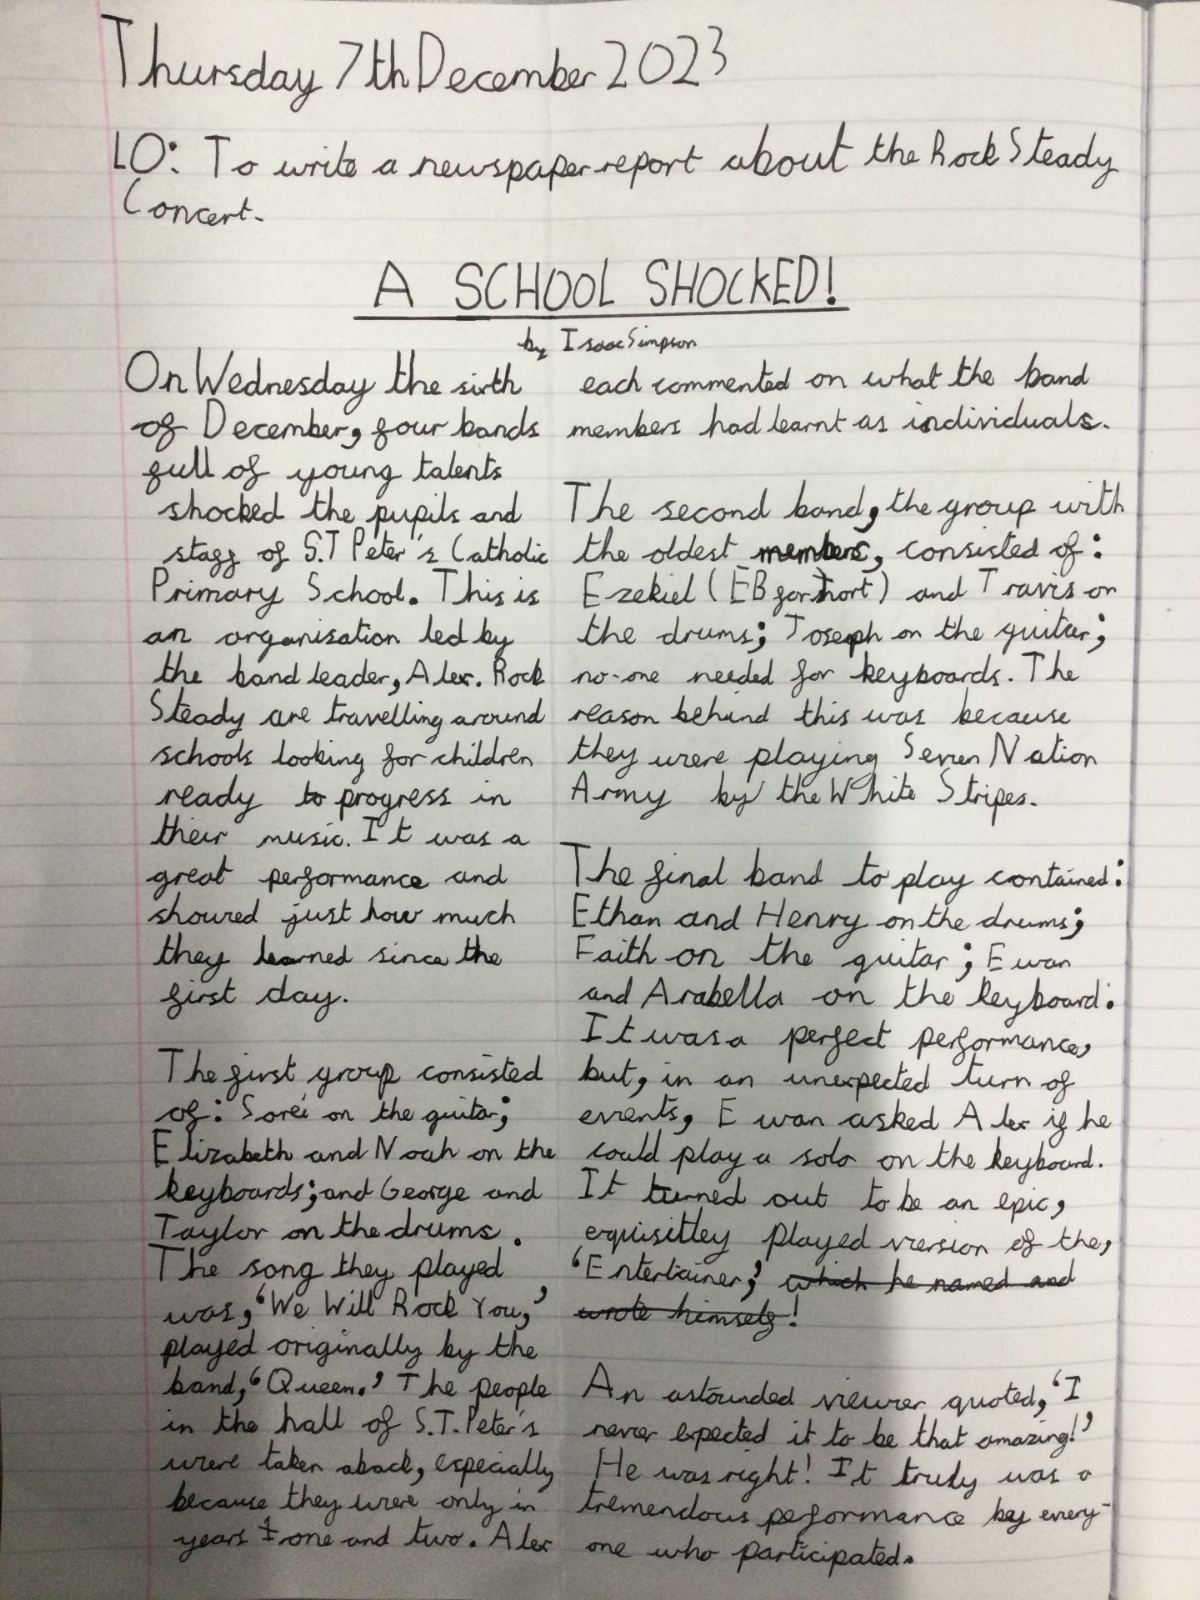 Thursday 7th December 2023
LO: To write a newspaper report about the Rock Steady
Concert.
A SCHOOL SHOCKED!
by Isaac Simpson
On Wednesday the sixth
of December, four bands
full of young talents
shocked the pupils and
staff of S.T Peter's Catholic
Primary School. This is
an organisation led by
the band leader, Alex. Rock
Steady are travelling around
schools looking for children
ready to progress in
their music. It was a
great performance and
showed just how much
they learned since the
first day.
The first group consisted
of: Soreí on the guitar;
Elizabeth and Noah on the
keyboards; and George and
Taylor on the drums.
The song they played
was, 'We Will Rock You,'
played originally by the
band, 'Queen.' The people
in the hall of S.T. Peter's
were taken aback, especially
because they were only in
years one and two. Alex
each commented on what the band
members had learnt as individuals.
The second band, the group with
the oldest members, consisted of:
Ezekiel (EB for short) and Travis on
the drums; Joseph on the guitar;
no-one needed for keyboards. The
reason behind this was because
they were playing Seven Nation
Army by the White Stripes.
The final band to play contained:
Ethan and Henry on the drums;
Faith on the guitar; Ewan
and Arabella on the keyboard.
It was a perfect performance,
but, in an unexpected turn of
events, Ewan asked Alex if he
could play a solo on the keyboard.
It turned out to be an epic,
exquisitley played version of the,
'Entertainer,' which he named and
wrote himself!
An astounded viewer quoted, 'I
never expected it to be that amazing!'
He was right! It truly was a
tremendous performance by every-
one who participated.